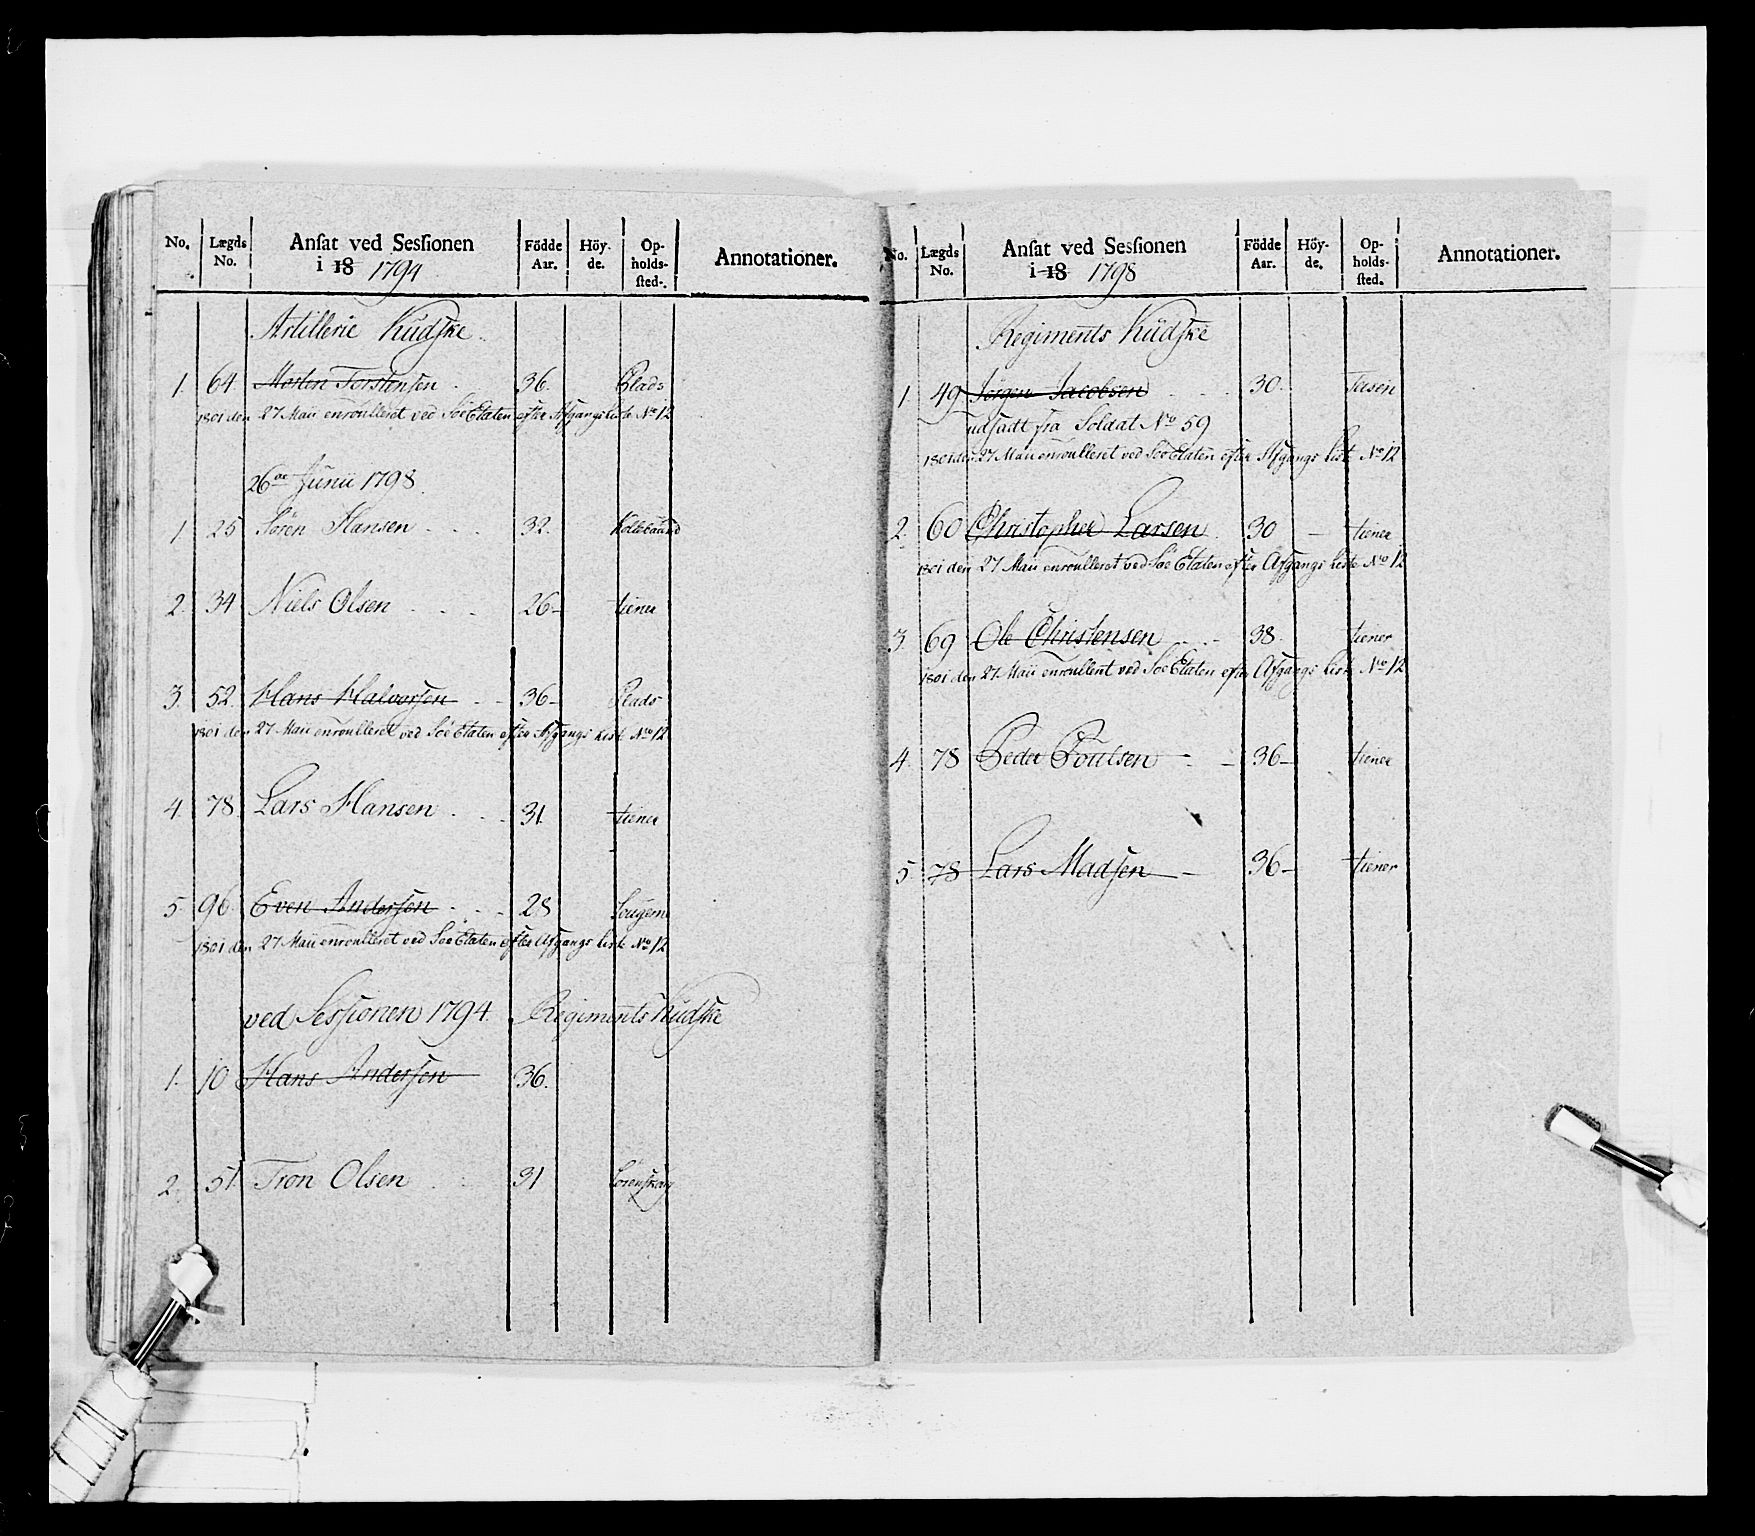 No. Lægds No. Ansat ved Sessionen i 18 1794 Födde Aar. Höy-de. Op-holds-sted. Annotationer.
Artillerie Kudske
1. 64. Morten Torstensen 36. Plads
1801 den 27 Maii enroulleret ved Söe Etaten efter Afgangs Liste No 12
26de Junii 1798
1. 25 Sören Hansen 32. Kolebaand
2. 34 Niels Olsen 26 tiener
3. 52. Hans Halvorsen 36 Plads
1801 den 27 Maii enroulleret ved Söe Etaten efter Afgangs Liste No 12
4. 78. Lars Hansen 31 tiener
5. 96. Even Andersen 28
1801 den 27 Maii enroulleret ved Söe Etaten efter Afgangs Liste No 12
ved Sessionen 1794. Regiments Kudske
1. 10 Hans Andersen 36.
2. 51. Tron Olsen 31
No. Lægds No. Ansat ved Sessionen i 18 1798 Födde Aar. Höy-de. Op-holds-sted. Annotationer.
Regiments Kudske
1. 49 Jörgen Jacobsen 30.
udsadt fra Soldat No 59
1801 den 27 Maii enroulleret ved Söe Etaten efter Afgangs List No 12
2. 60 Christopher Larsen 30 tiener
1801 den 27 Maii enroulleret ved Söe Etaten efter Afgangs Liste No 12
3. 69 Ole Christensen 38. tiener
1801 den 27 Maii enroullent ved Söe Etaten efter Afgangs Liste No 12
4. 78 Peder Poulsen 36 tiener
5 78 Lars Madsen 36 tiener